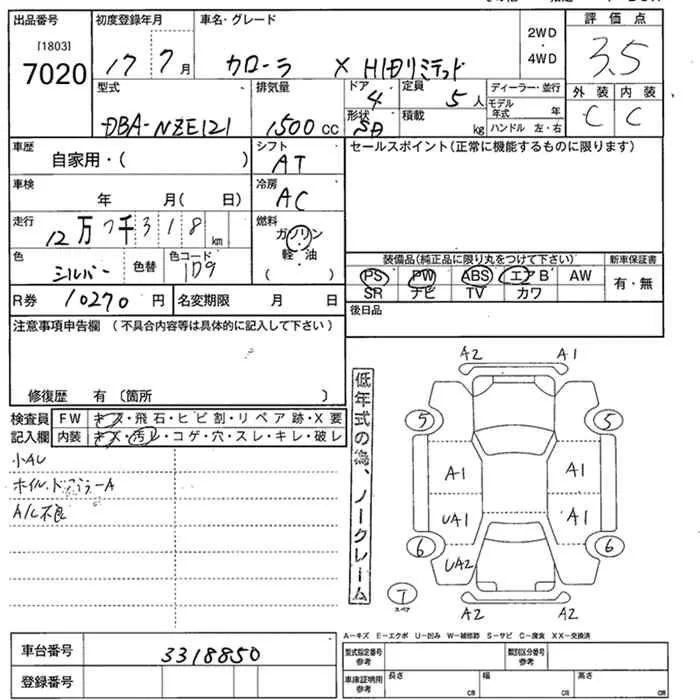 出品番号 初度登録年月 車名・グレード 評価点
[1803]
7020 17 7月 カローラ X HIDリミテッド 2WD・4WD 3.5
型式 排気量 ドア 4 定員 5人 ディーラー・並行 外装 内装
DBA-NZE121 1500cc 形状 SD 積載 kg モデル年式 年 C C
ハンドル 左・右
車歴 自家用・( ) シフト AT セールスポイント(正常に機能するものに限ります)
車検 年 月(日) 冷房 AC
走行 12万7千318km 燃料 ガソリン・軽・油( )
色 シルバー 色替 色コード 1D9
装備品(純正品に限り丸をつけて下さい) 新車保証書
PS PW ABS エアB AW 有・無
SR ナビ TV カワ
R券 10270円 名変期限 月 日 後日品
注意事項申告欄(不具合内容等は具体的に記入して下さい)
修復歴 有(箇所 )
検査員記入欄 FW キズ・飛石・ヒビ割・リペア跡・X要
内装 キズ・汚レ・コゲ・穴・スレ・キレ・破レ
小AU
ホイル、ドアミラーA
A/C不良
低年式の為、ノークレーム
A2 A1
5 5
A1 A1
UA1 A1
6 6
UA2
T
スペア
A2 A2
A-キズ E-エクボ U-凹み W-補修跡 S-サビ C-腐食 XX-交換済
車台番号 3318850
登録番号
型式指定番号 参考 類別区分番号 参考
車庫証明用 参考 長さ cm 幅 cm 高さ cm